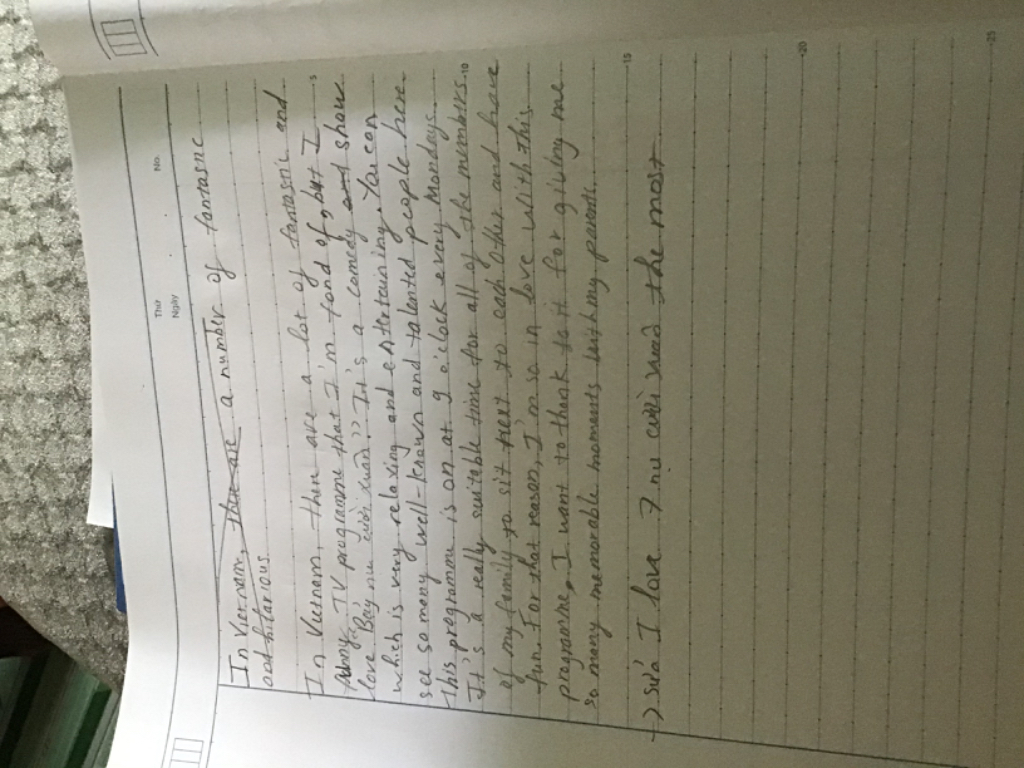 No.
Thứ
Ngày
In Viernam, there are a number of fantasnc
and hilarious
In Vietnam, there are a lot of fantasnic and
funny TV programme that I'm fond of, but I
love "Bảy nụ cười xuân" It's a comedy and show
which is very relaxing and entertaining. You can
see so many well-known and talented people here
This programme is on at 9 o'clock every Mondays.
It's a really suitable time for all of the members
of my family to sit next to each other and have
fun. For that reason, I'm so in love with this
programme, I want to thank to it for giving me
so many memorable moments with my parents.
→ sửa I love 7 nụ cười xuân the most
5
10
15
20
25